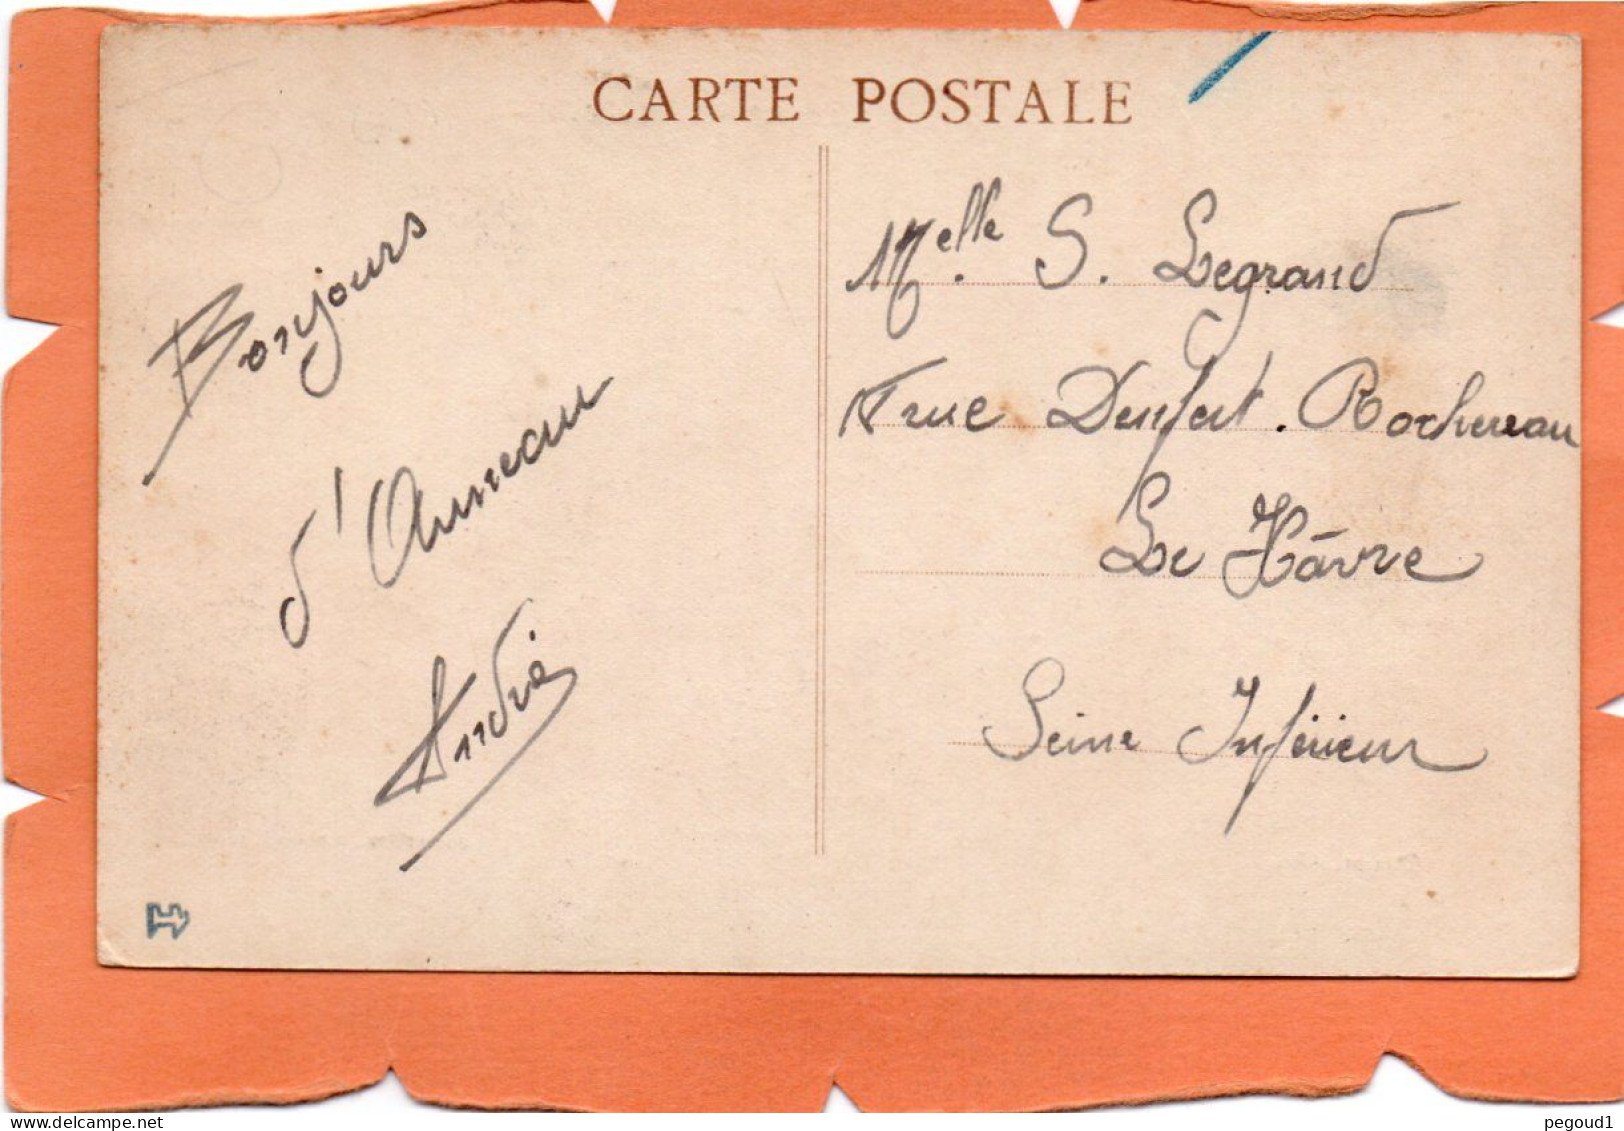 CARTE POSTALE
Bonjours
d'Auneau
André
Melle S. Legrand
rue Denfert. Rochereau
Le Hâvre
Seine Inférieur
pegoud1